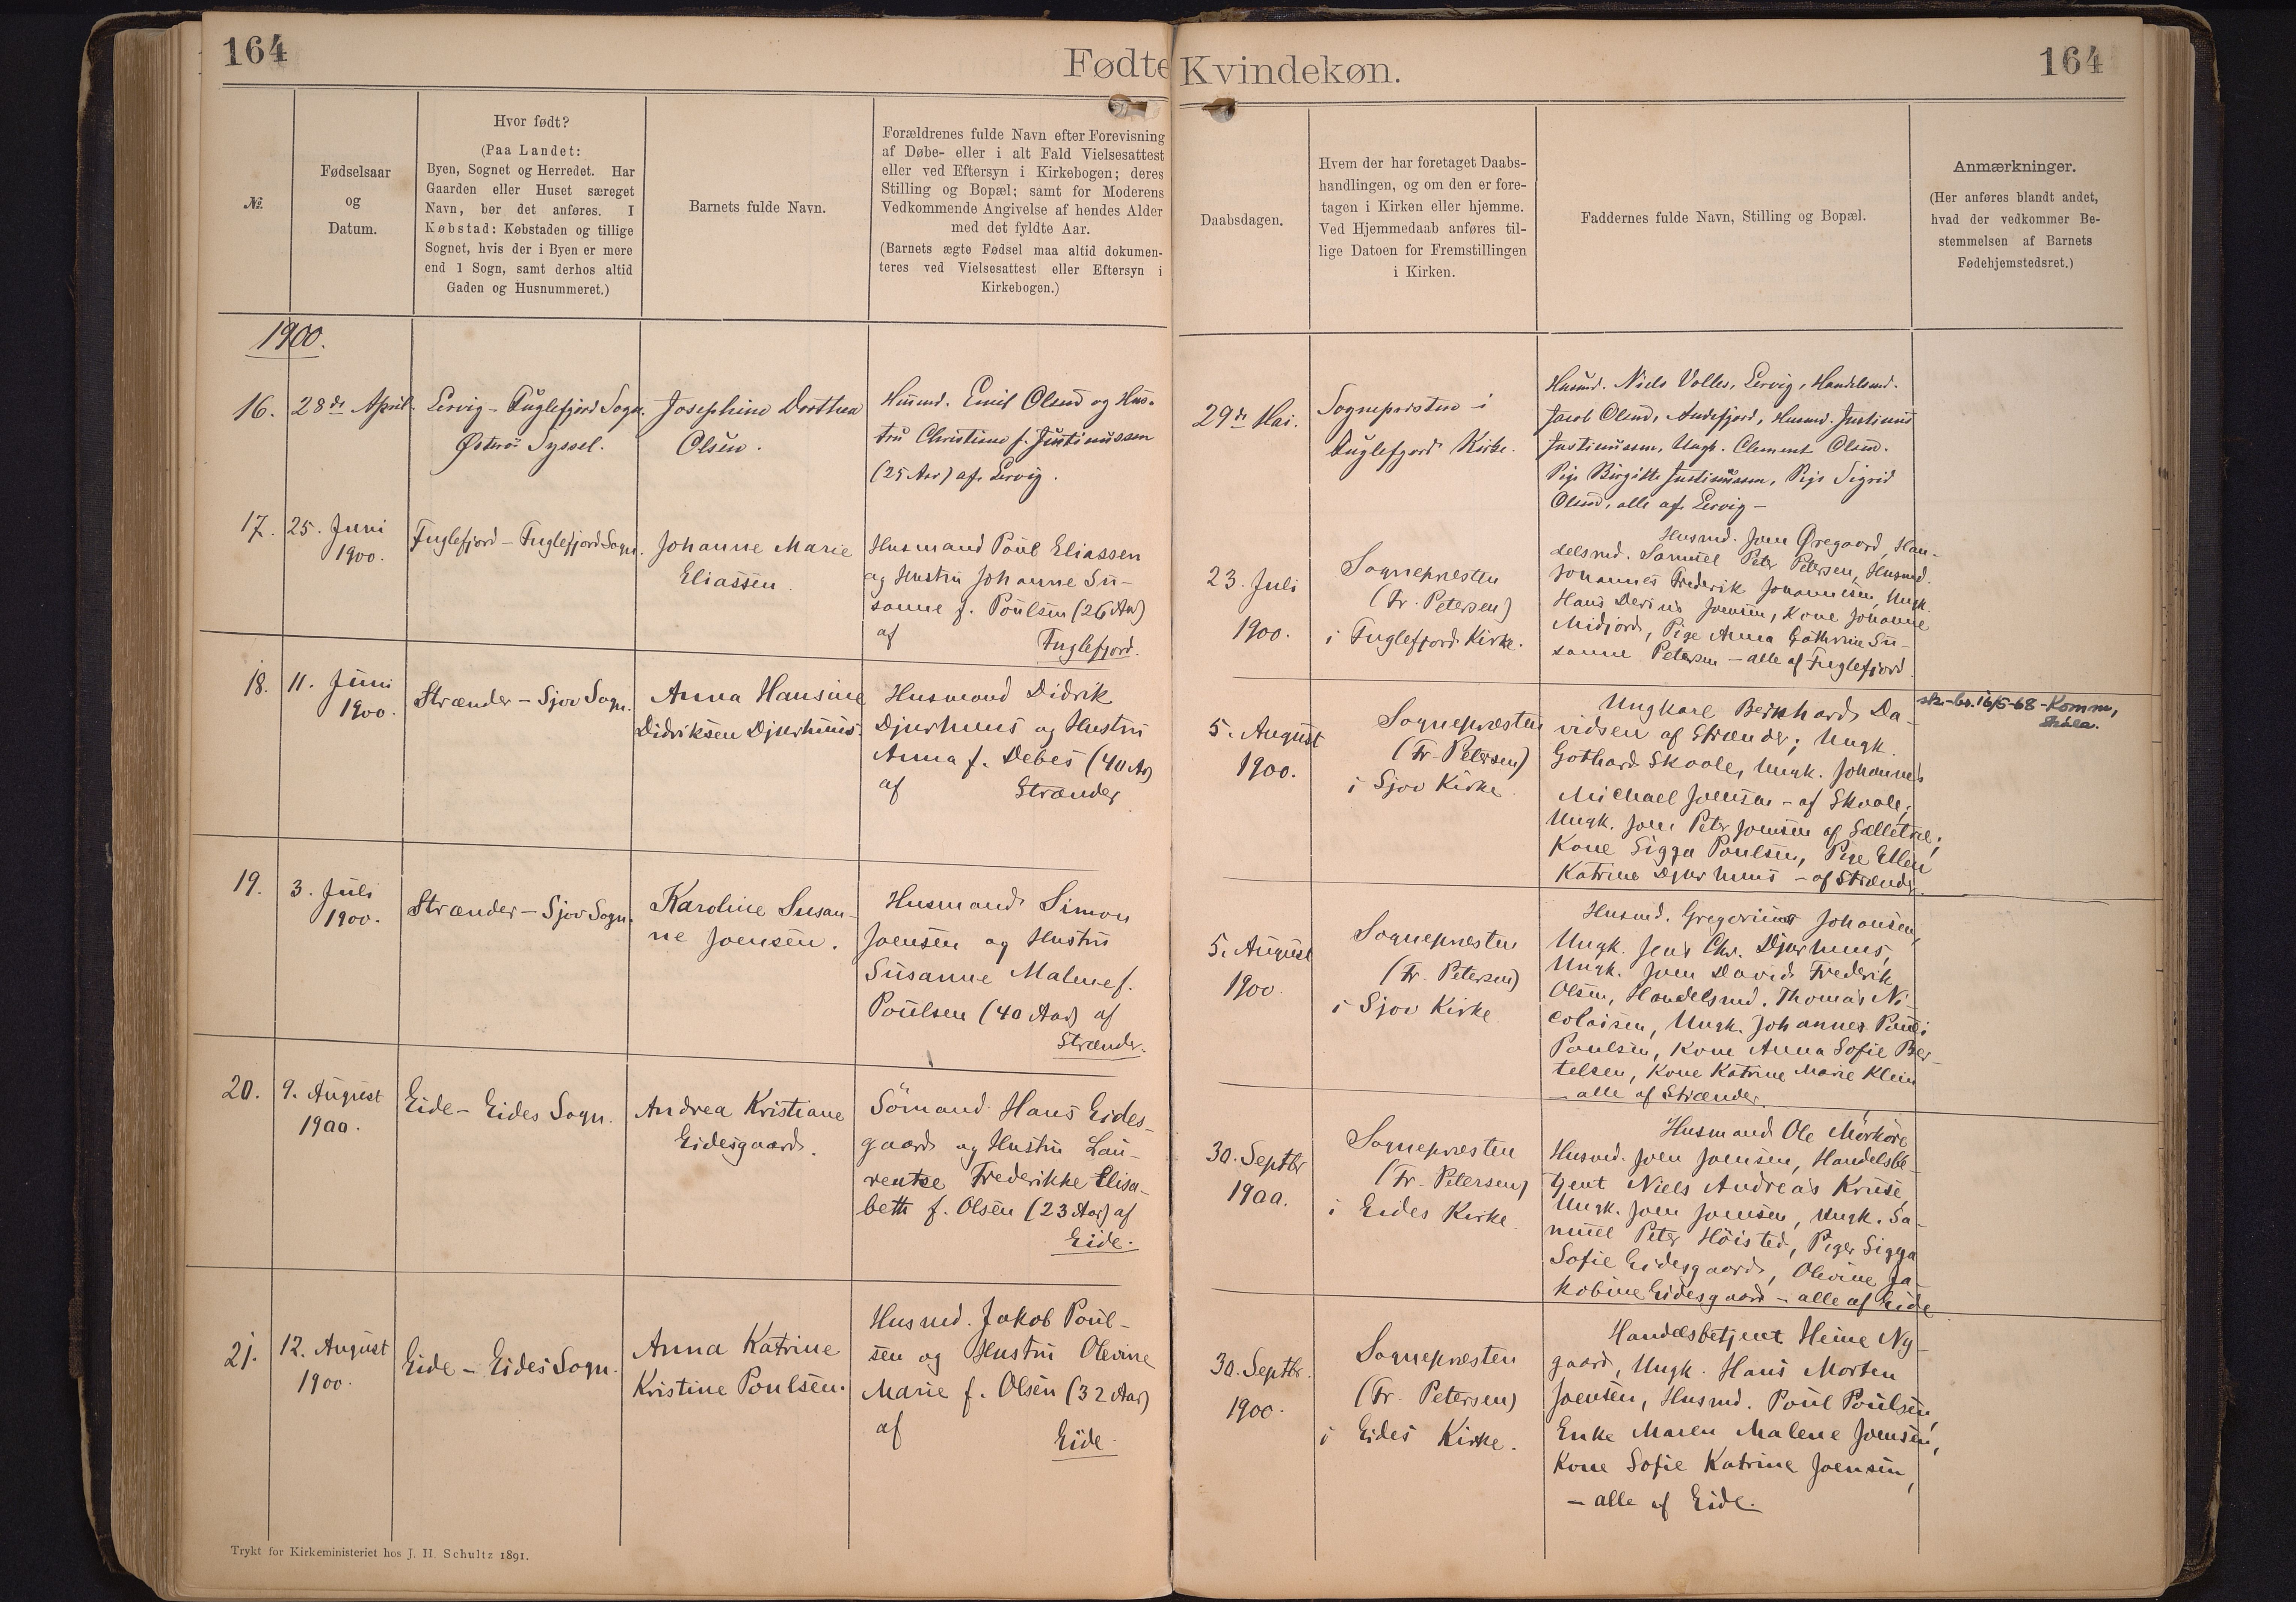 164
Fødte Kvindekøn.
164
№.
Fødselsaar
og
Datum.
Hvor født?
(Paa Landet:
Byen, Sognet og Herredet. Har
Gaarden eller Huset særeget
Navn, bør det anføres. I
Købstad: Købstaden og tillige
Sognet, hvis der i Byen er mere
end 1 Sogn, samt derhos altid
Gaden og Husnummeret.)
Barnets fulde Navn.
Forældrenes fulde Navn efter Forevisning
af Døbe- eller i alt Fald Vielsesattest
eller ved Eftersyn i Kirkebogen; deres
Stilling og Bopæl; samt for Moderens
Vedkommende Angivelse af hendes Alder
med det fyldte Aar.
(Barnets ægte Fødsel maa altid dokumen-
teres ved Vielsesattest eller Eftersyn i
Kirkebogen.)
Daabsdagen.
Hvem der har foretaget Daabs-
handlingen, og om den er fore-
tagen i Kirken eller hjemme.
Ved Hjemmedaab anføres til-
lige Datoen for Fremstillingen
i Kirken.
Faddernes fulde Navn, Stilling og Bopæl.
Anmærkninger.
(Her anføres blandt andet,
hvad der vedkommer Be-
stemmelsen af Barnets
Fødehjemstedsret.)
1900.
16.
28de April.
Lervig - Fuglefjord Sogn.
Østerö Syssel.
Josephine Dorthea
Olsen.
Husmd. Emil Olsen og Hus-
tru Christiane f. Justinussen
(25 Aar) af Lervig.
29de Mai.
Sognepresten i
Fuglefjord Kirke.
Husmd. Niels Volles, Lervig, Handelsmd.
Jacob Olsen, Andefjord, Husmd. Justinus
Justinussen, Ungk. Clement Olsen.
Pige Birgitte Justinussen, Pige Sigrid
Olsen, alle af Lervig -
17.
25. Juni
1900.
Fuglefjord - Fuglefjord Sogn.
Johanne Marie
Eliassen.
Husmand Poul Eliassen
og Hustru Johanne Su-
sanne f. Poulsen (26 Aar)
af Fuglefjord.
23. Juli
1900.
Sognepræsten
(Fr. Petersen)
i Fuglefjord Kirke.
Husmd. Joen Øregaard, Han-
delsmd. Samuel Peter Petersen, Husmd.
Johannes Frederik Johannesen, Ungk.
Hans Joensen, Kone Johanne
Midjord, Pige Anna Cathrine Su-
sanne Petersen - alle af Fuglefjord
18.
11. Juni
1900.
Strænder - Sjov Sogn.
Anna Hansine
Didriksen Djurhuus.
Husmand Didrik
Djurhuus og Hustru
Anna f. Debes (40 Ar)
af Strænder.
5. August
1900.
Sognepræsten
(Fr. Petersen)
i Sjov Kirke.
Ungkarl Bernhard Da-
vidsen af Strænder; Ungk.
Gothard Skaale, Ungk. Johannes
Michael Joensen - af Skaale;
Ungk. Joen Peter Joensen af Selletræ;
Kone Sigga Poulsen, Pige Ellen
Katrine Djurhuus - af Strænder.
16/5-68 - Komm,
Skåla.
19.
3. Juli
1900.
Strænder - Sjov Sogn.
Karoline Susan-
ne Joensen.
Husmand Simon
Joensen og Hustru
Susanne Malene f.
Poulsen (40 Aar) af
Strænder.
5. August
1900
Sognepræsten
(Fr. Petersen)
i Sjov Kirke
Husmd. Gregorius Johansen,
Ungk. Jens Chr. Djurhuus,
Ungk. Joen David Frederik
Olsen, Handelsmd. Thomas Ni-
colaisen, Ungk. Johannes Pauli
Poulsen, Kone Anna Sofie Ber-
telsen, Kone Katrine Marie Klein
- alle af Strænder.
20.
9. August
1900.
Eide - Eides Sogn.
Andrea Kristiane
Eidesgaard.
Sömand Hans Eides-
gaard og Hustru Lau-
rentse Frederikke Elisa-
beth f. Olsen (23 Aar) af
Eide.
30. Septbr
1900.
Sognepræsten
(Fr. Petersen)
i Eides Kirke.
Husmand Ole Mörköre,
Husmd. Joen Joensen, Handelsbe-
tjent Niels Andreas Kruse,
Ungk. Joen Joensen, Ungk. Sa-
muel Peter Höisted, Piger Sigga
Sofie Eidesgaard, Olevine Ja-
kobine Eidesgaard - alle af Eide
21.
12. August
1900.
Eide - Eides Sogn.
Anna Katrine
Kristine Poulsen.
Husmd. Jakob Poul-
sen og Hustru Olevine
Marie f. Olsen (32 Aar)
af Eide.
30. Septbr.
1900.
Sognepræsten
(Fr. Petersen)
i Eides Kirke.
Handelsbetjent Heine Ny-
gaard, Ungk. Hans Morten
Joensen, Husmd. Poul Poulsen,
Enke Maren Malene Joensen,
Kone Sofie Katrine Joensen,
- alle af Eide.
Trykt for Kirkeministeriet hos J. H. Schultz 1891.